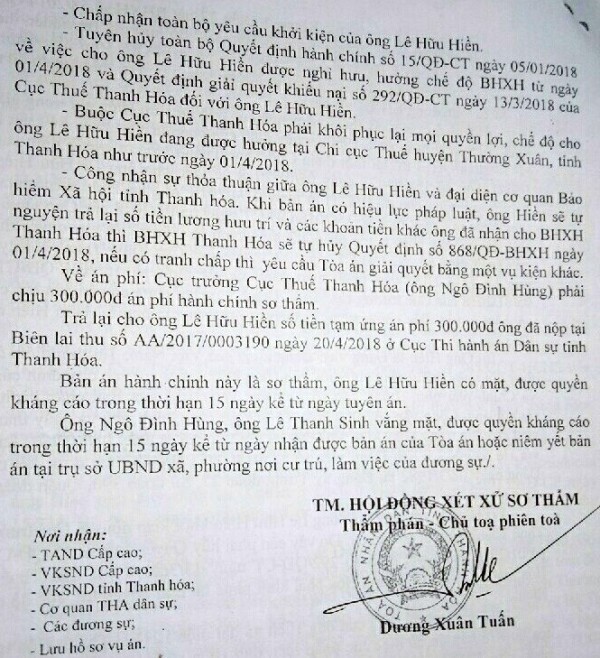 - Chấp nhận toàn bộ yêu cầu khởi kiện của ông Lê Hữu Hiền.
- Tuyên hủy toàn bộ Quyết định hành chính số 15/QĐ-CT ngày 05/01/2018
về việc cho ông Lê Hữu Hiền được nghỉ hưu, hưởng chế độ BHXH từ ngày
01/4/2018 và Quyết định giải quyết khiếu nại số 292/QĐ-CT ngày 13/3/2018 của
Cục Thuế Thanh Hóa đối với ông Lê Hữu Hiền.
- Buộc Cục Thuế Thanh Hóa phải khôi phục lại mọi quyền lợi, chế độ cho
ông Lê Hữu Hiền đang được hưởng tại Chi cục Thuế huyện Thường Xuân, tỉnh
Thanh Hóa như trước ngày 01/4/2018.
- Công nhận sự thỏa thuận giữa ông Lê Hữu Hiền và đại diện cơ quan Bảo
hiểm Xã hội tỉnh Thanh hóa. Khi bản án có hiệu lực pháp luật, ông Hiền sẽ tự
nguyện trả lại số tiền lương hưu trí và các khoản tiền khác ông đã nhận cho BHXH
Thanh Hóa thì BHXH Thanh Hóa sẽ tự hủy Quyết định số 868/QĐ-BHXH ngày
01/4/2018, nếu có tranh chấp thì yêu cầu Tòa án giải quyết bằng một vụ kiện khác.
Về án phí: Cục trưởng Cục Thuế Thanh Hóa (ông Ngô Đình Hùng) phải
chịu 300.000đ án phí hành chính sơ thẩm.
Trả lại cho ông Lê Hữu Hiền số tiền tạm ứng án phí 300.000đ ông đã nộp tại
Biên lai thu số AA/2017/0003190 ngày 20/4/2018 ở Cục Thi hành án Dân sự tỉnh
Thanh Hóa.
Bản án hành chính này là sơ thẩm, ông Lê Hữu Hiền có mặt, được quyền
kháng cáo trong thời hạn 15 ngày kể từ ngày tuyên án.
Ông Ngô Đình Hùng, ông Lê Thanh Sinh vắng mặt, được quyền kháng cáo
trong thời hạn 15 ngày kể từ ngày nhận được bản án của Tòa án hoặc niêm yết bản
án tại trụ sở UBND xã, phường nơi cư trú, làm việc của đương sự./.
TM. HỘI ĐỒNG XÉT XỬ SƠ THẨM
Thẩm phán - Chủ toạ phiên toà
Dương Xuân Tuấn
Nơi nhận:
- TAND Cấp cao;
- VKSND Cấp cao;
- VKSND tỉnh Thanh hóa;
- Cơ quan THA dân sự;
- Các đương sự;
- Lưu hồ sơ vụ án.